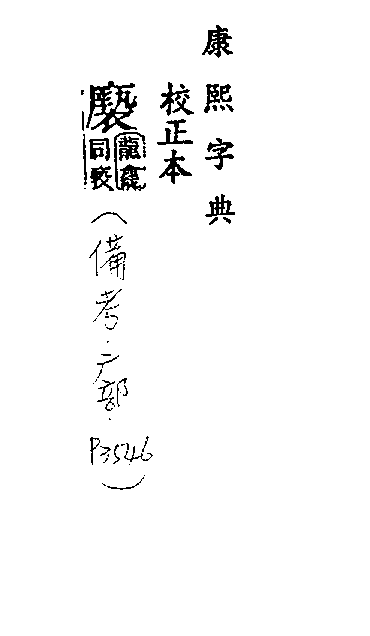 康熙字典
校正本
龍龕
同𢊁
(備考·广部·
P3546)